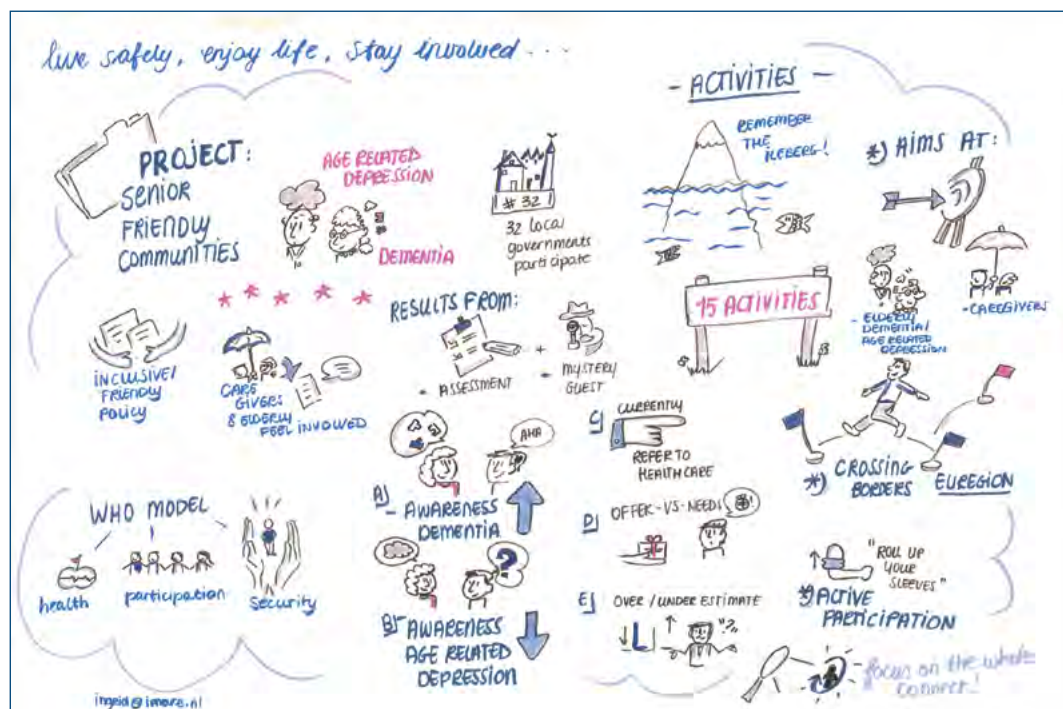 live safely, enjoy life, stay involved ...
PROJECT:
SENIOR
FRIENDLY
COMMUNITIES
AGE RELATED
DEPRESSION
DEMENTIA
# 32
32 local
governments
participate
INCLUSIVE/
FRIENDLY
POLICY
CARE
GIVERS
& ELDERLY
FEEL INVOLVED
RESULTS FROM:
- ASSESSMENT
+
- MYSTERY
GUEST
WHO MODEL
health
participation
security
AHA
A)
AWARENESS
DEMENTIA
?
B)
AWARENESS
AGE RELATED
DEPRESSION
C)
CURRENTLY
REFER TO
HEALTH CARE
D)
OFFER-VS-NEEDS
E)
OVER / UNDER ESTIMATE
"?"
- ACTIVITIES -
REMEMBER
THE
ICEBERG!
15 ACTIVITIES
*) AIMS AT:
- ELDERLY
DEMENTIA/
AGE RELATED
DEPRESSION
- CAREGIVERS
*) CROSSING
BORDERS
EUREGION
"ROLL UP
YOUR
SLEEVES"
*) ACTIVE
PARTICIPATION
focus on the whole
connect!
ingrid@imore.nl